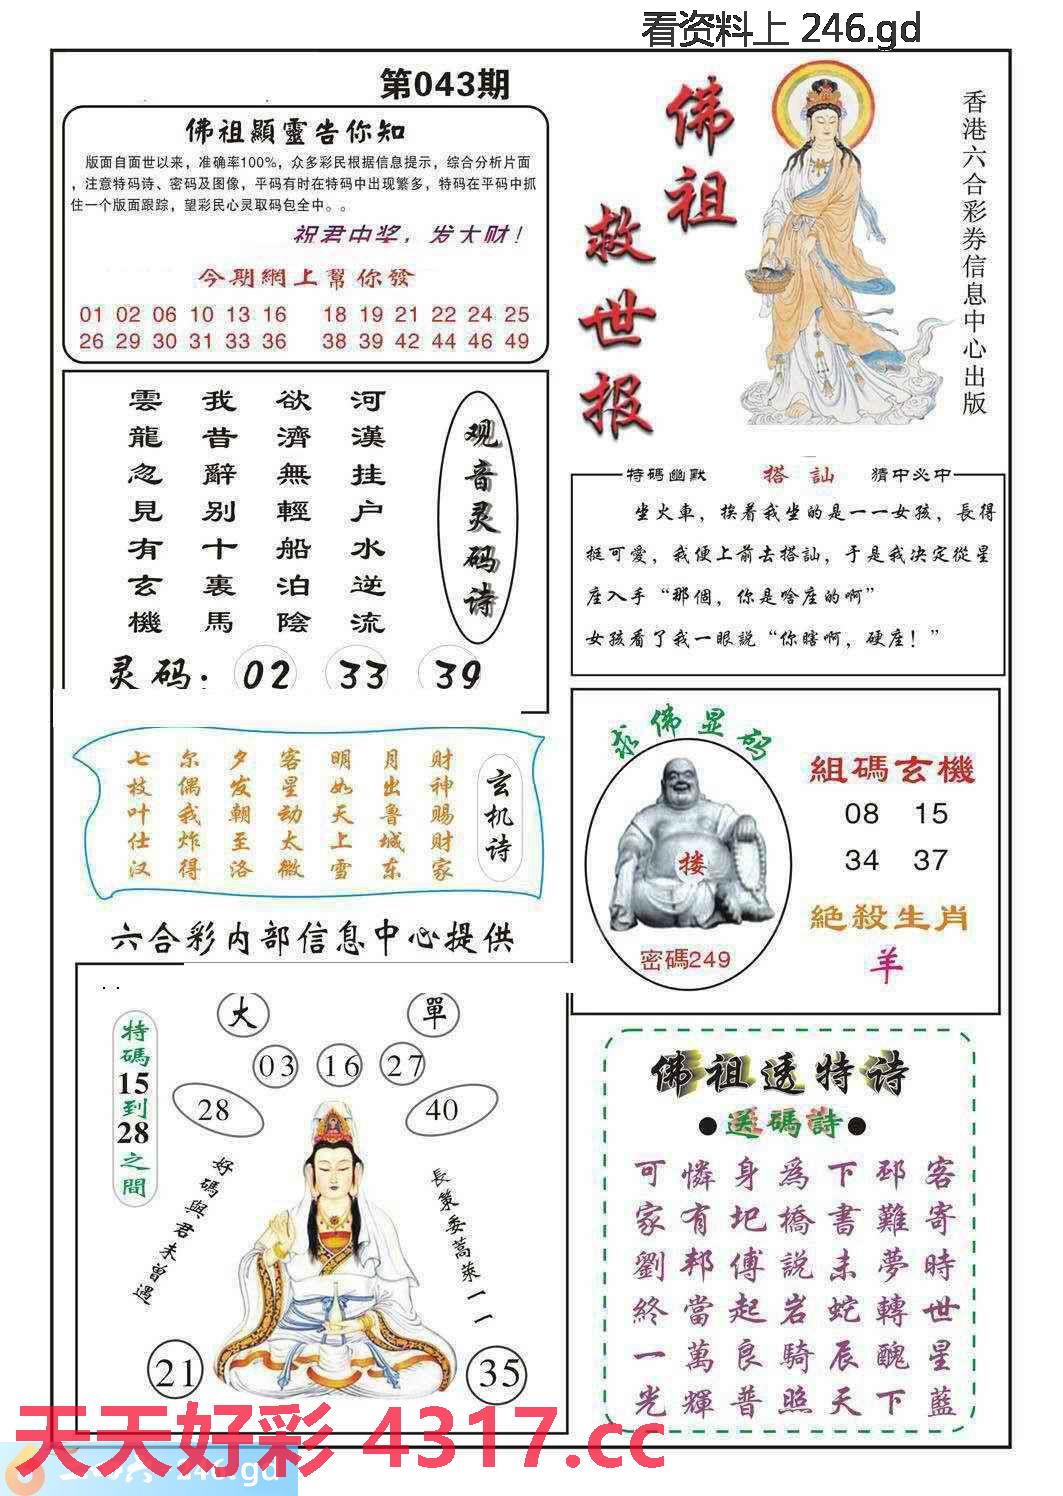 看资料上 246.gd
第043期
佛祖顯靈告你知
版面自面世以来，准确率100%，众多彩民根据信息提示，综合分析片面
，注意特码诗、密码及图像，平码有时在特码中出现繁多，特码在平码中抓
住一个版面跟踪，望彩民心灵取码包全中。。
祝君中奖，发大财！
今期網上幫你發
01 02 06 10 13 16 18 19 21 22 24 25
26 29 30 31 33 36 38 39 42 44 46 49
佛祖
救世报
香港六合彩券信息中心出版
观音灵码诗
河漢挂户水逆流
欲濟無輕船泊陰
我昔辭别十裏馬
雲龍忽見有玄機
灵码：02 33 39
特碼幽默 搭訕 猜中必中
坐火車，挨着我坐的是一一女孩，長得
挺可愛，我便上前去搭訕，于是我决定從星
座入手“那個，你是啥座的啊”
女孩看了我一眼說“你瞎啊，硬座！”
玄机诗
财神赐财家
月出鲁城东
明如天上雪
客星动太微
夕发朝至洛
尔偶我炸得
七枝叶仕汉
求佛显码
搂
密碼249
組碼玄機
08 15
34 37
絶殺生肖
羊
六合彩内部信息中心提供
大 單
03 16 27
28 40
特碼15到28之間
長策委蒿萊一一
好碼與君未曾遇
21 35
佛祖透特诗
●送碼詩●
客寄時世星藍
邳難夢轉醜下
下書未蛇辰天
爲橋說岩騎照
身圯傅起良普
憐有邦當萬輝
可家劉終一光
天天好彩 4317.cc
246.gd